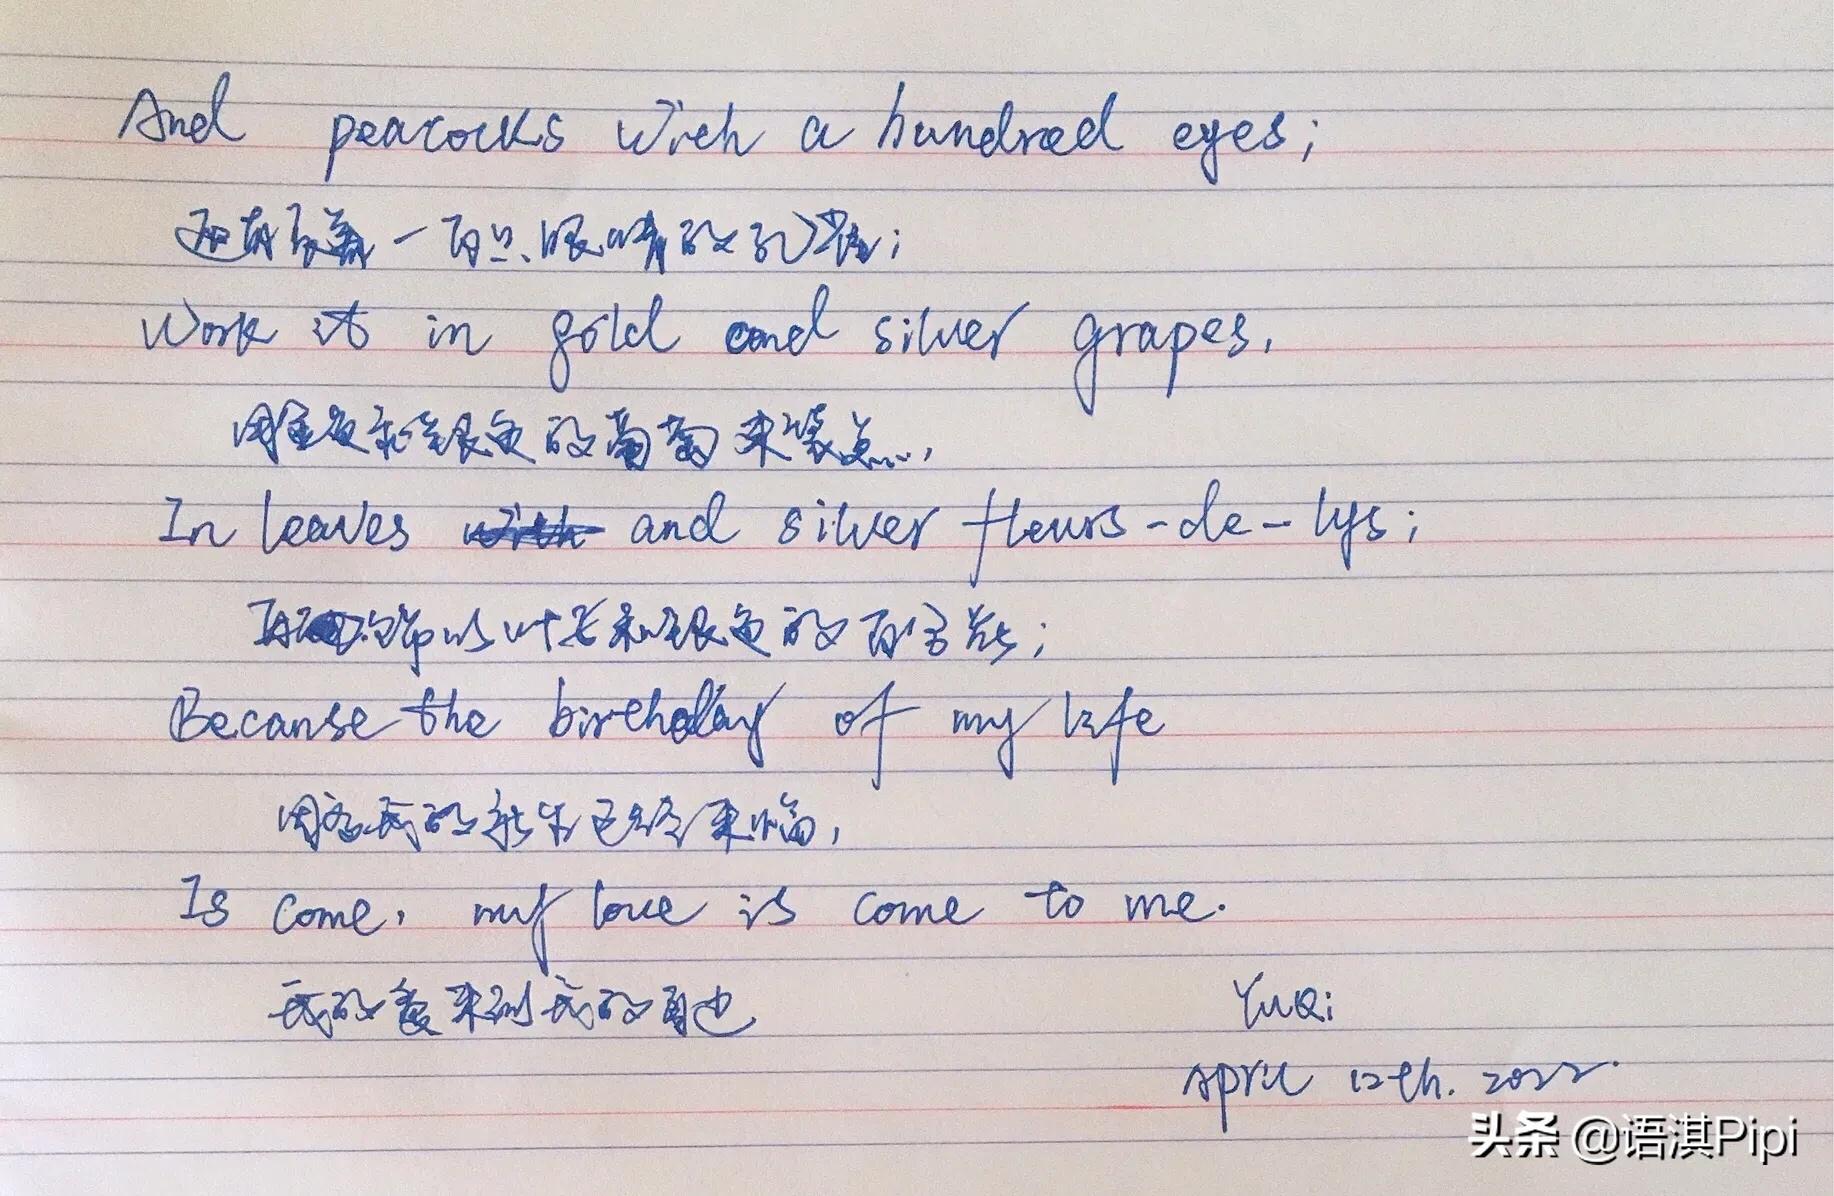 And peacocks with a hundred eyes;
还有长着一百只眼睛的孔雀;
Work it in gold and silver grapes,
用金色和银色的葡萄来装点,
In leaves and silver fleurs-de-lys;
以叶子和银色的百合花;
Because the birthday of my life
因为我的新生已经来临,
Is come, my love is come to me.
我的爱来到我的身边
YuQi
April 12th. 2022.
头条 @语淇Pipi